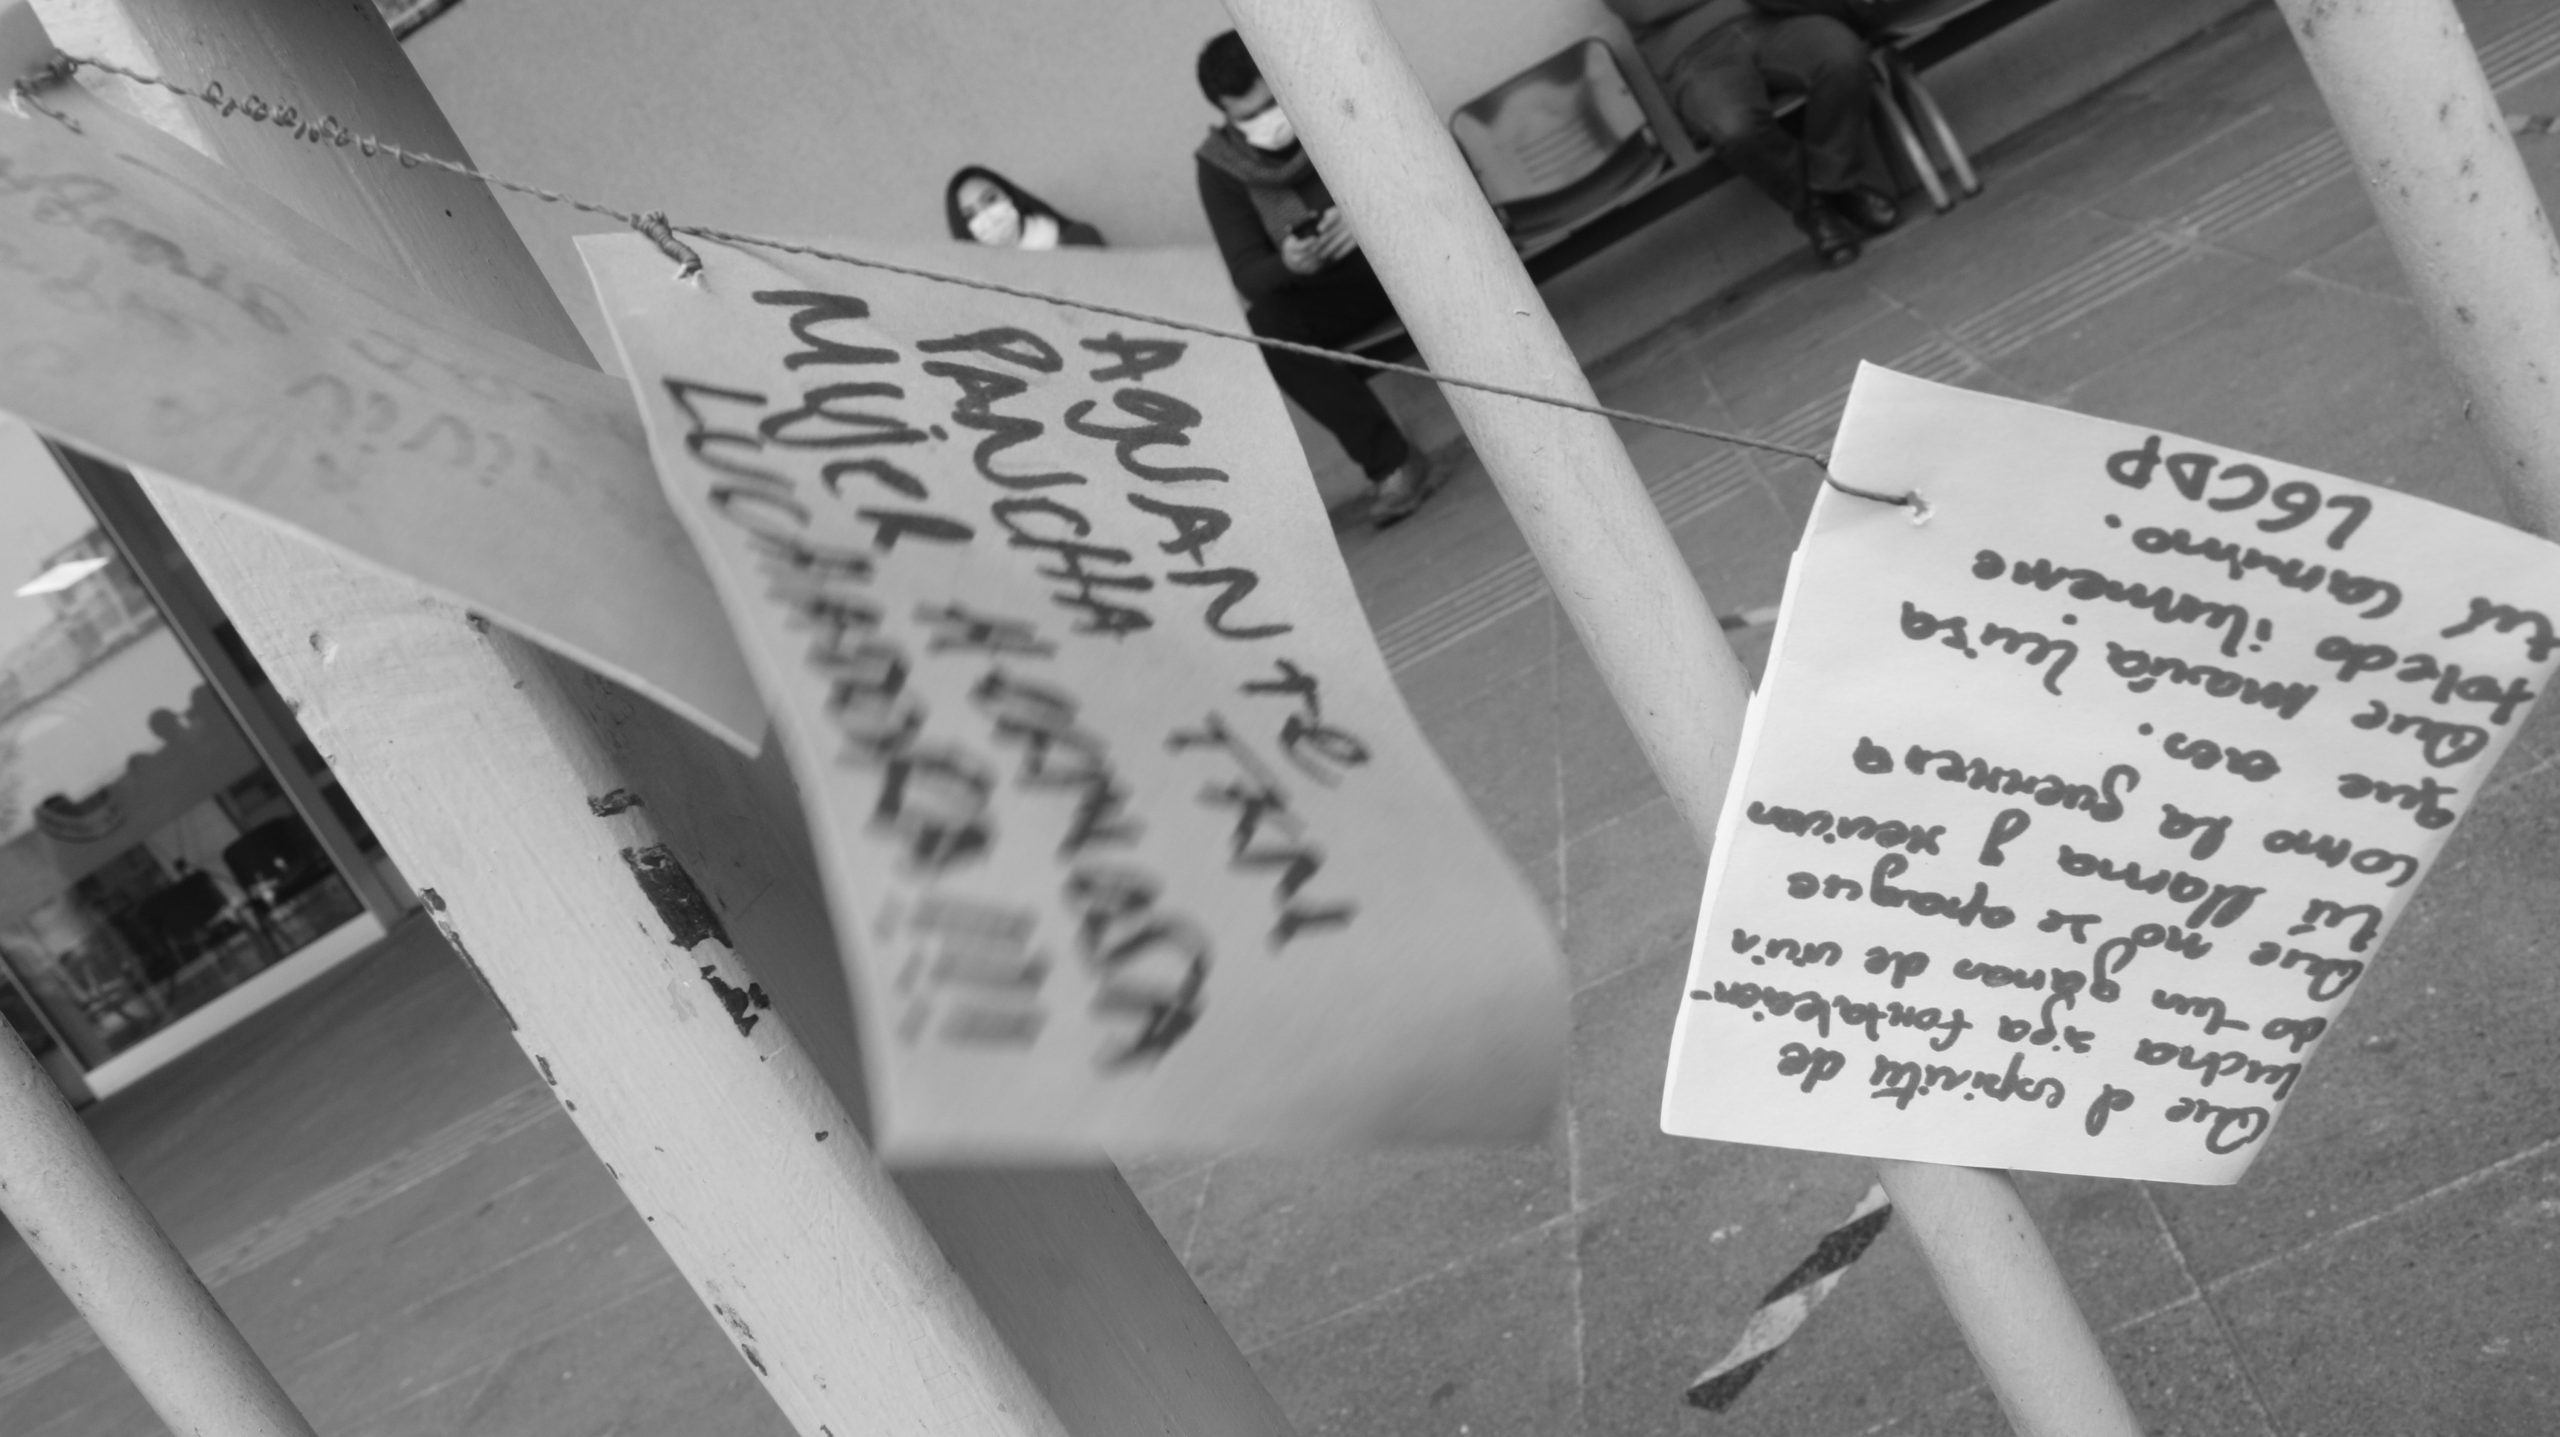 AGUANTE
PANCHA
MUJER HONRADA
LUCHADORA!!!
Que el espiritu de
lucha siga fortalecien-
do tus ganas de vivir
Que no se apague
tú llama y revivas
como la guerrera
que eres.
Que maría luisa
toledo ilumene
tú camino.
LGCDP